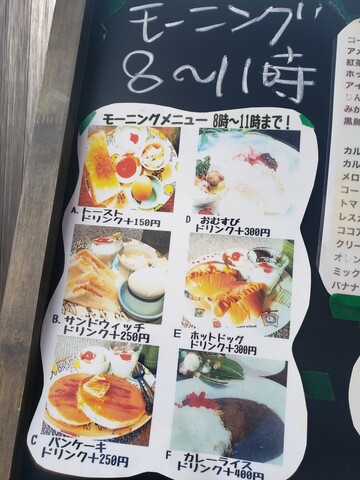 モーニング
8〜11時
モーニングメニュー 8時〜11時まで！
A.トースト
ドリンク+150円
D おむすび
ドリンク+300円
B.サンドウィッチ
ドリンク+250円
E ホットドッグ
ドリンク+300円
C パンケーキ
ドリンク+250円
F カレーライス
ドリンク+400円
コー
アメ
紅茶
ホッ
アイ
りん
みか
黒烏
カル
カル
メロ
コー
トマ
レス
ココア
クリー
オレン
ミック
バナナ